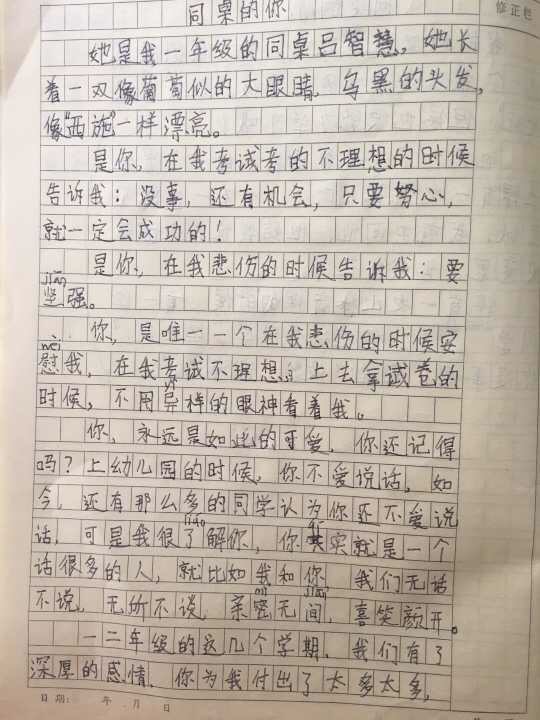 同桌的你
修正栏
她是我一年级的同桌吕智慧。她长
着一双像葡萄似的大眼睛，乌黑的头发，
像"西施"一样漂亮。
是你，在我考试考的不理想的时候
告诉我：没事，还有机会，只要努心，
就一定会成功的！
是你，在我悲伤的时候告诉我：要
jiān
坚强。
你，是唯一一个在我悲伤的时候安
wèi
慰我，在我考试不理想，上去拿试卷的
yì
时候，不用异样的眼神看着我。
你，永远是如此的可爱，你还记得
吗？上幼儿园的时候，你不爱说话，如
今，还有那么多的同学认为你还不爱说
liǎo
qí
话，可是我很了解你，你其实就是一个
话很多的人，就比如我和你，我们无话
mì
不说，无所不谈，亲密无间，喜笑颜开。
一二年级的这几个学期，我们有了
深厚的感情，你为我付出了太多太多，
日期： 年 月 日